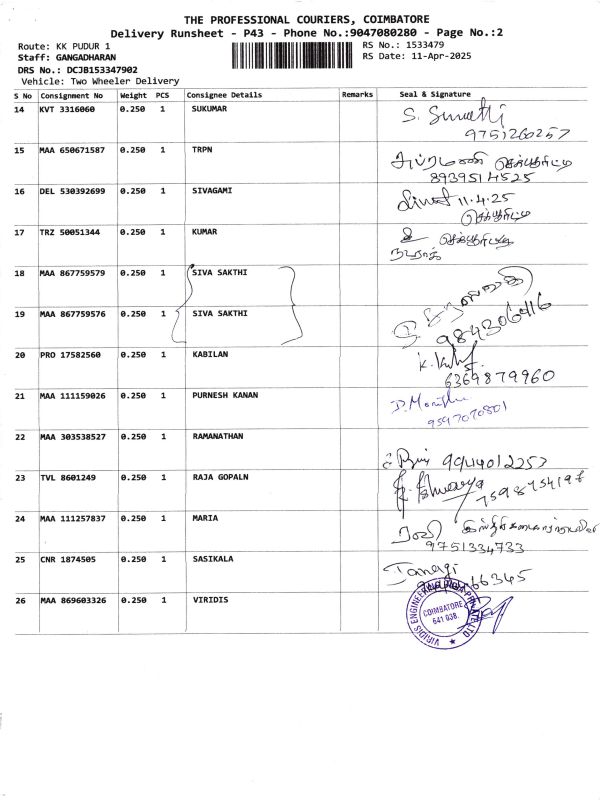 THE PROFESSIONAL COURIERS, COIMBATORE
Delivery Runsheet - P43 - Phone No.:9047080280 - Page No.:2
Route: KK PUDUR 1
RS No.: 1533479
Staff: GANGADHARAN
RS Date: 11-Apr-2025
DRS No.: DCJB153347902
Vehicle: Two Wheeler Delivery
S No Consignment No Weight PCS Consignee Details Remarks Seal & Signature
14 KVT 3316060 0.250 1 SUKUMAR S. Sumathi
9751260257
15 MAA 650671587 0.250 1 TRPN
8939514525
16 DEL 530392699 0.250 1 SIVAGAMI 11.4.25
17 TRZ 50051344 0.250 1 KUMAR
18 MAA 867759579 0.250 1 SIVA SAKTHI
19 MAA 867759576 0.250 1 SIVA SAKTHI
9843064116
20 PRO 17582560 0.250 1 KABILAN
6369879960
21 MAA 111159026 0.250 1 PURNESH KANAN
9597070801
22 MAA 303538527 0.250 1 RAMANATHAN
23 TVL 8601249 0.250 1 RAJA GOPALN
24 MAA 111257837 0.250 1 MARIA
ரவி
9751334733
25 CNR 1874505 0.250 1 SASIKALA
26 MAA 869603326 0.250 1 VIRIDIS
COIMBATORE
641 038.